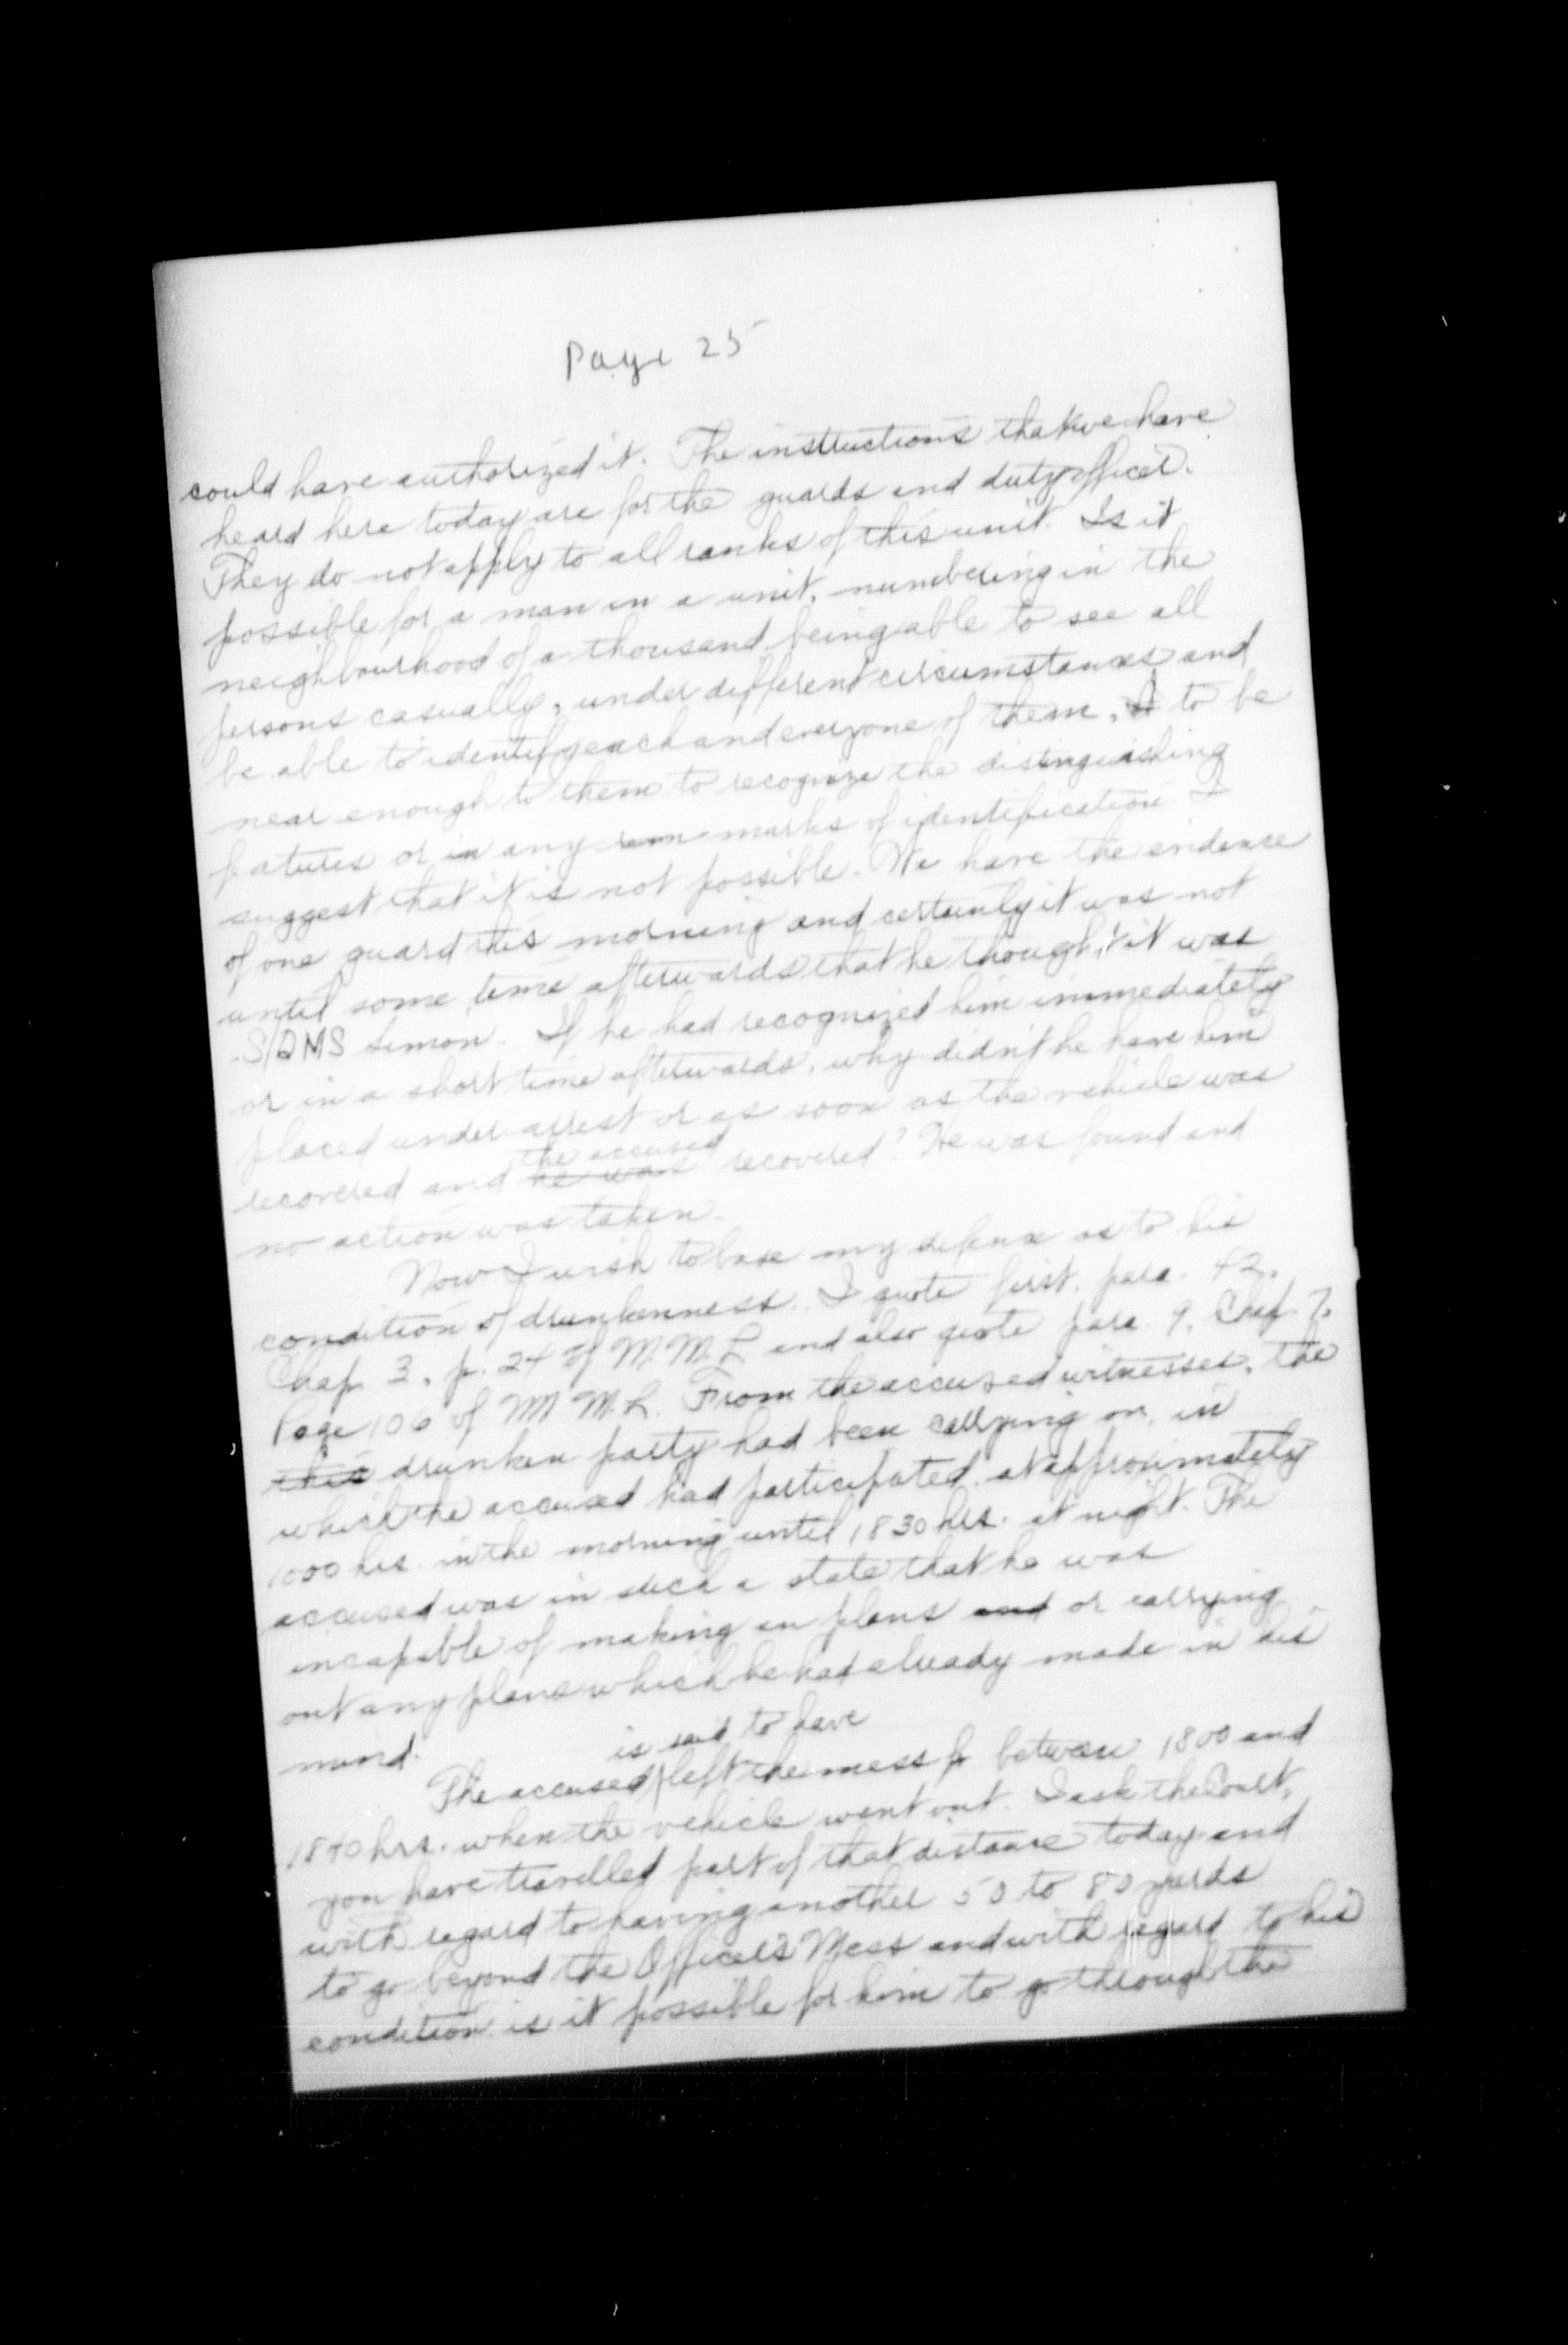 Page 25
could have authorized it. The instructions that we have
heard here today are for the guards and duty officer.
They do not apply to all ranks of this unit. Is it
possible for a man in a unit, numbering in the
neighbourhood of a thousand being able to see all
persons casually, under different circumstances and
be able to identify each and everyone of them, to be
near enough to them to recognize the distinguishing
features or in any marks of identification I
suggest that it is not possible. We have the evidence
of one guard this morning and certainly it was not
until some time afterwards that he thought it was
S/QMS Simon. If he had recognized him immediately
or in a short time afterwards, why didn't he have him
placed under arrest or as soon as the vehicle was
recovered and he was the accused recovered? He was found and
no action was taken.
Now I wish to base my defence as to his
condition of drunkenness. I quote first, para. 42,
Chap 3, p. 24 of M.M.L and also quote para. 9, Chap 7,
Page 106 of M.M.L. From the accused witnesses, the
this drunken party had been carrying on, in
which the accused had participated, at approximately
1000 hrs in the morning until 1830 hrs. at night. The
accused was in such a state that he was
incapable of making an plans and or carrying
out any plans which he had already made in his
mind.
The accused is said to have left the mess between 1800 and
1840 hrs. when the vehicle went out. I ask the Court,
you have travelled part of that distance today and
with regard to having another 50 to 80 yards
to go beyond the Officers Mess and with regard to his
condition is it possible for him to go through the